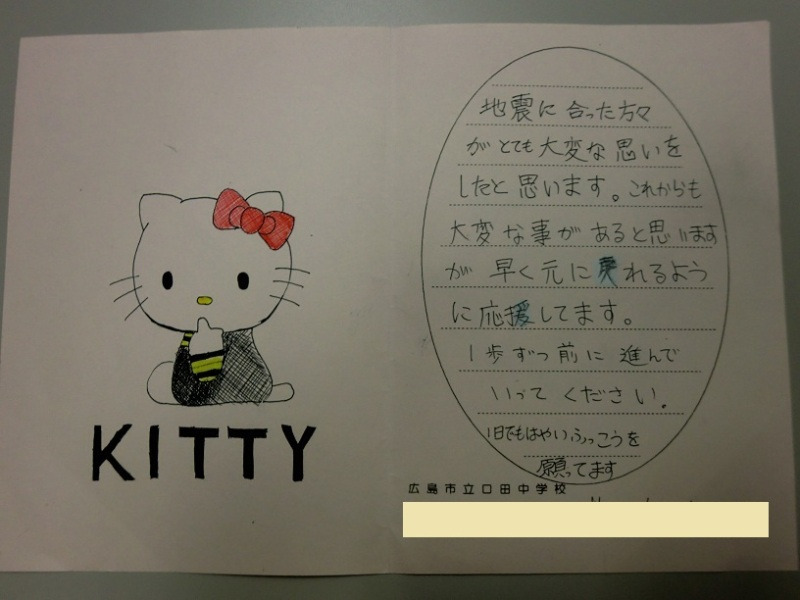 KITTY
地震に合った方々
がとても大変な思いを
したと思います。これからも
大変な事があると思います
が早く元に戻れるよう
に応援してます。
1歩ずつ前に進んで
いってください。
1日でもはやいふっこうを
願ってます
広島市立口田中学校